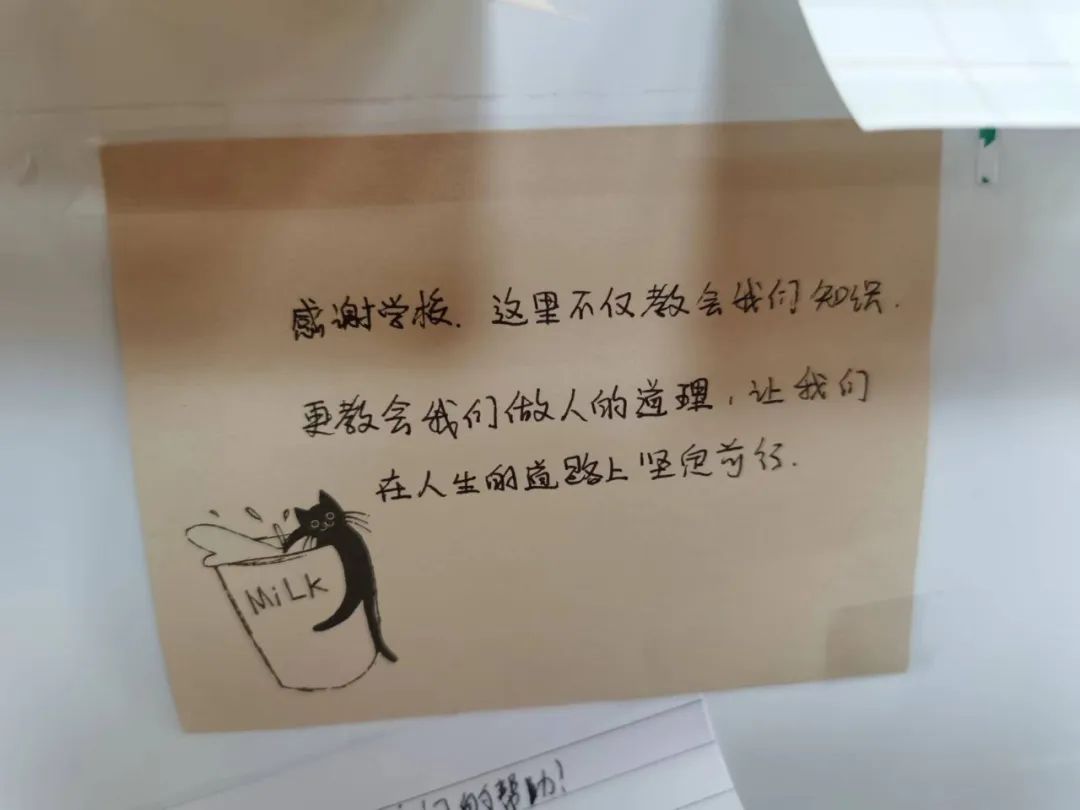 感谢学校. 这里不仅教会我们知识.
更教会我们做人的道理, 让我们
在人生的道路上坚定前行.
MiLK
的帮助!